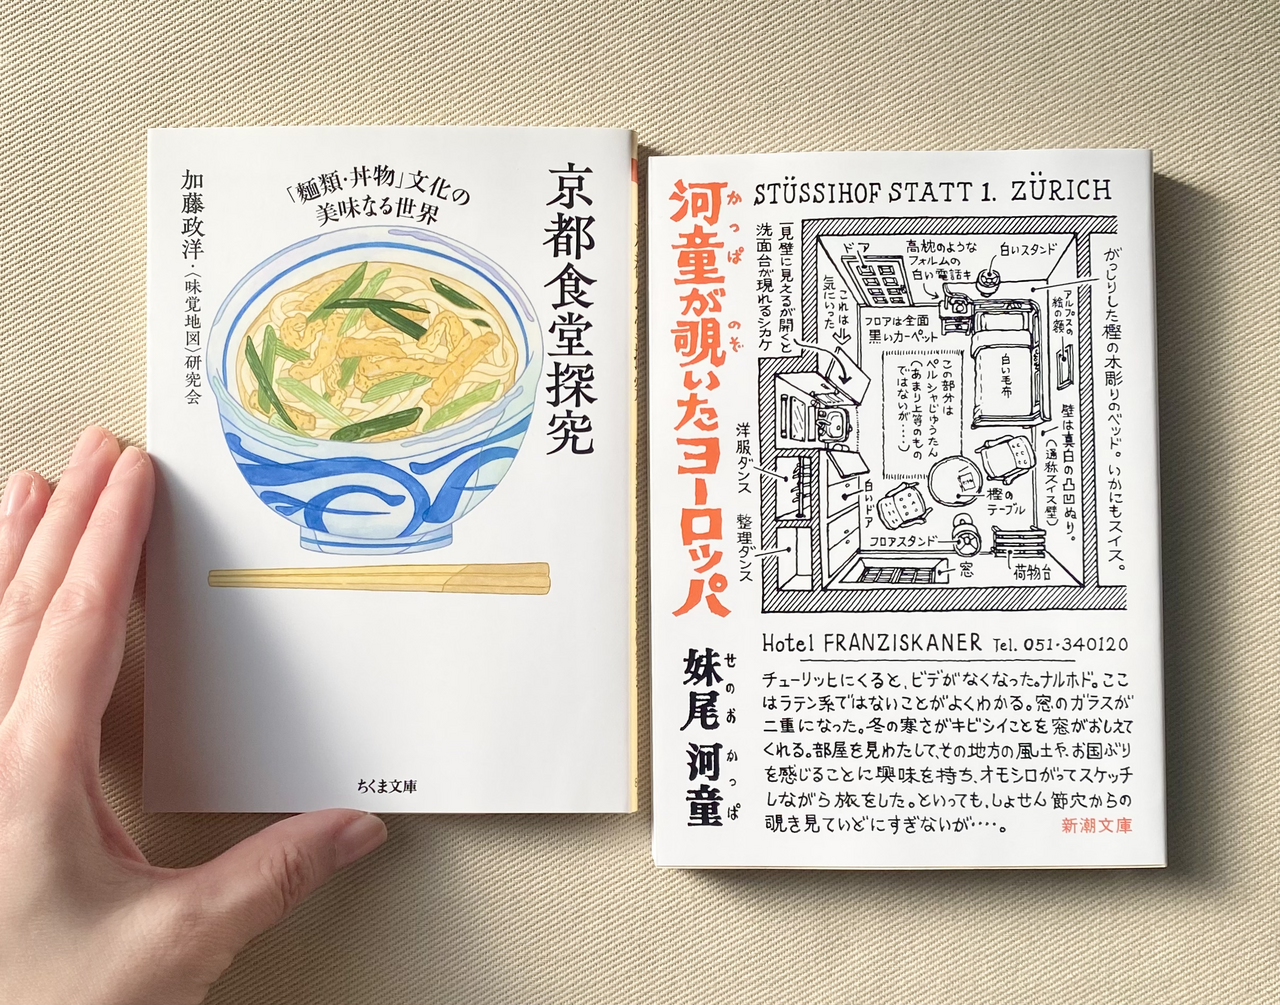 京都食堂探究
「麺類・丼物」文化の
美味なる世界
加藤政洋・〈味覚地図〉研究会
ちくま文庫
河童が覗いたヨーロッパ
かっぱ
のぞ
妹尾河童
せのお
かっぱ
STÜSSIHOF STATT 1. ZÜRICH
一見壁に見えるが開くと
洗面台が現れるシカケ
ドア
これは
気にいった
高枕のような
フォルムの
白い電話キ
白いスタンド
フロアは全面
黒いカーペット
アルプスの
絵の額
白い毛布
この部分は
ペルシャじゅうたん
(あまり上等のもの
ではないが・・・・)
がっしりした樫の木彫りのベッド。いかにもスイス。
壁は真白の凸凹ぬり。
(通称スイス壁)
洋服ダンス
整理ダンス
白いドア
樫の
テーブル
フロアスタンド
窓
荷物台
Hotel FRANZISKANER Tel. 051・340120
チューリッヒにくると、ビデがなくなった。ナルホド。ここ
はラテン系ではないことがよくわかる。窓のガラスが
二重になった。冬の寒さがキビシイことを窓がおしえて
くれる。部屋を見わたして、その地方の風土や、お国ぶり
を感じることに興味を持ち、オモシロがってスケッチ
しながら旅をした。といっても、しょせん節穴からの
覗き見ていどにすぎないが・・・・。
新潮文庫